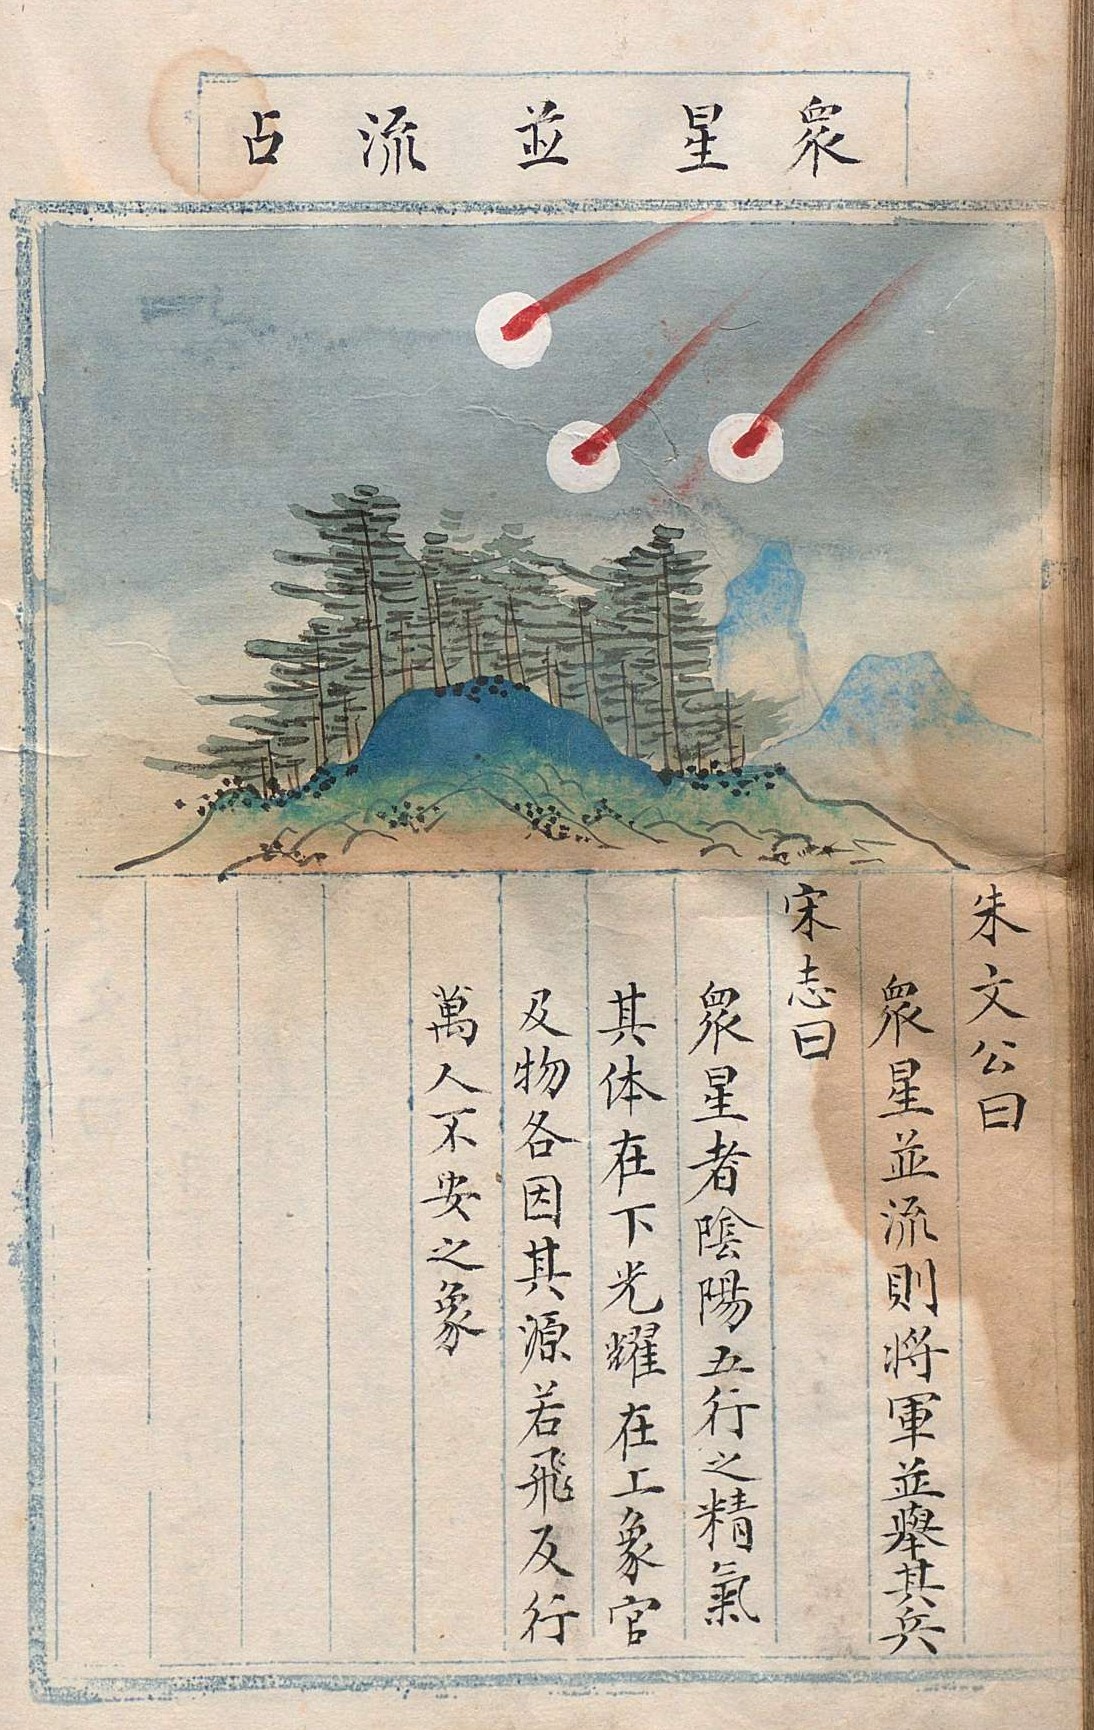 衆星並流占
朱文公曰
衆星並流則将軍並舉其兵
宋志曰
衆星者陰陽五行之精氣
其体在下光耀在上象官
及物各因其源若飛反行
萬人不安之象